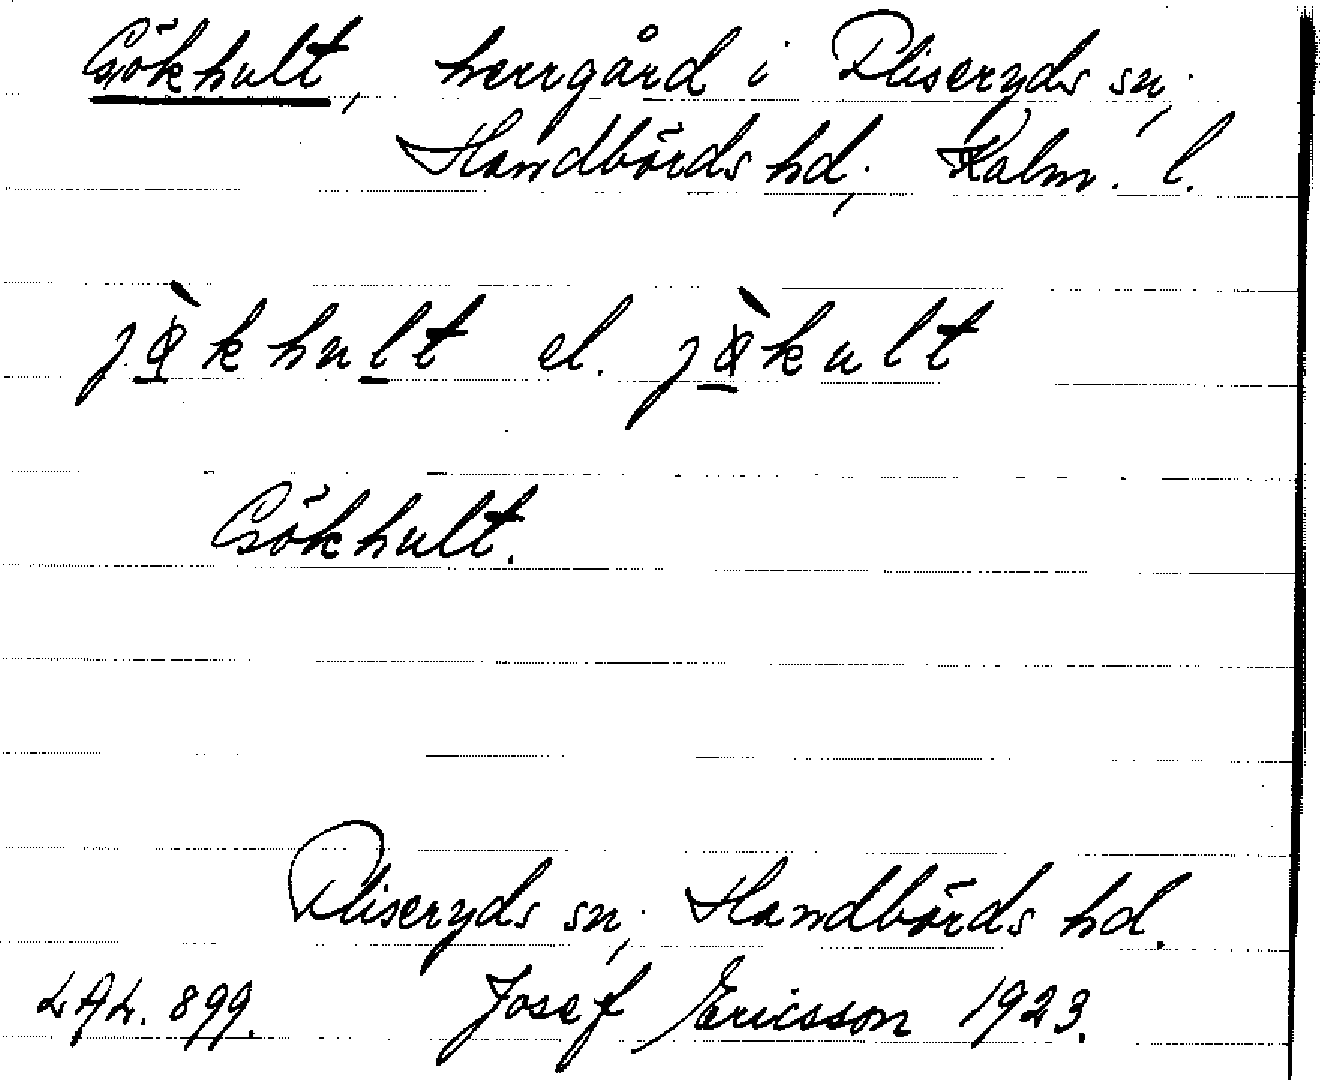 Gökhult, herrgård i Pliseryds sn;
Handbörds hd; Kalm. l.
jø̀khult el. jø̀kult
Gökhult.
Pliseryds sn; Handbörds hd.
LAL. 899. Josef Ericsson 1923.